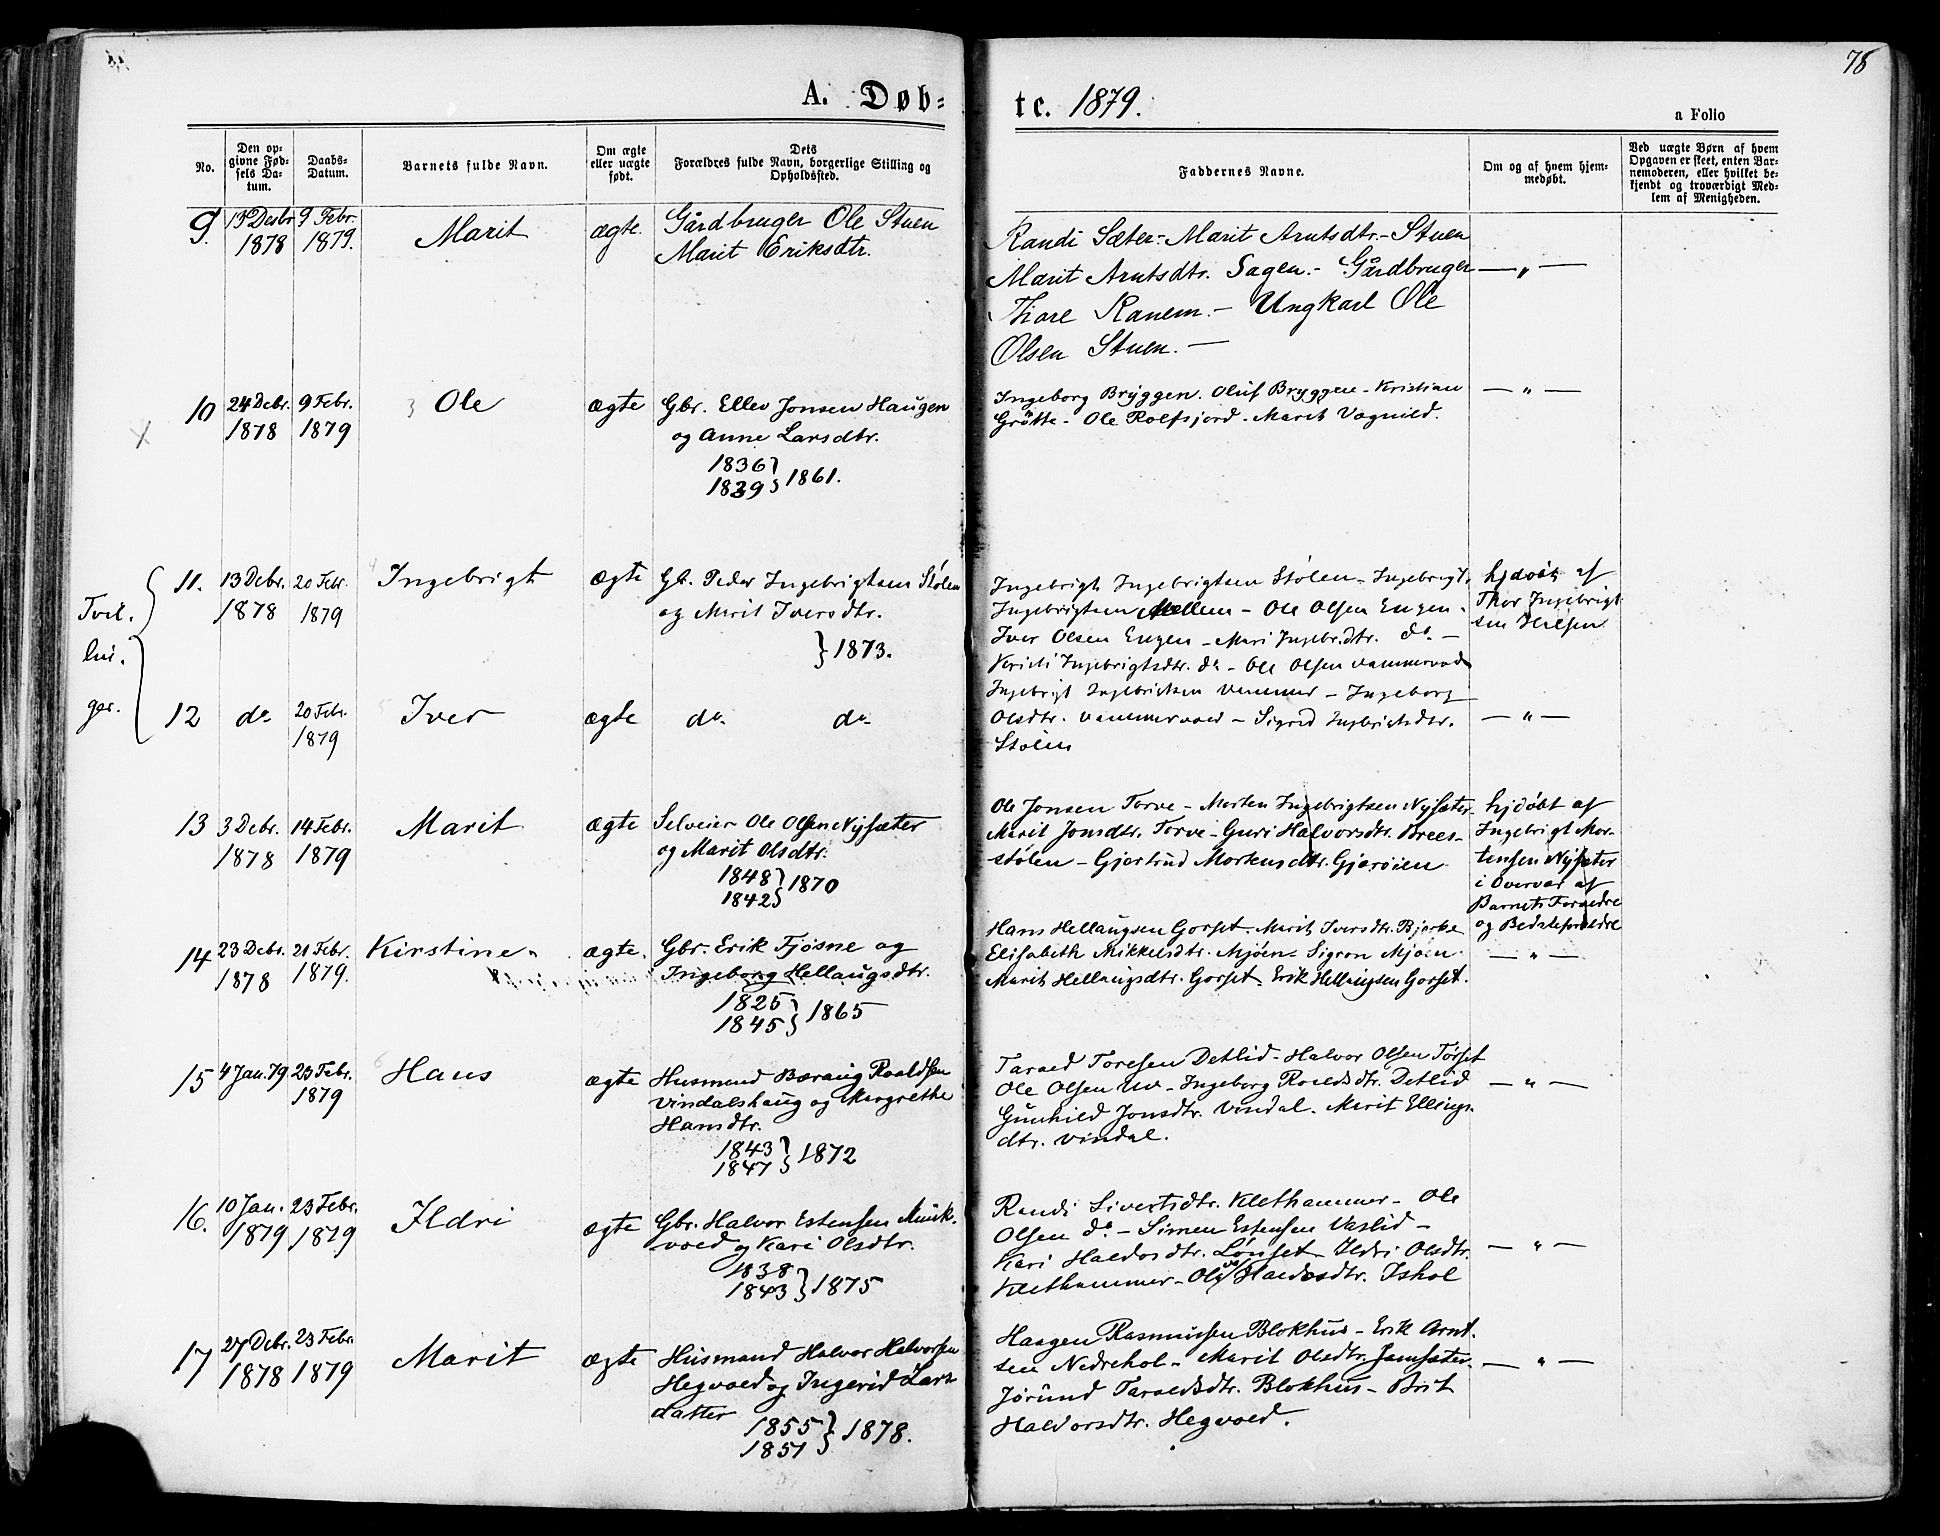 78
A. Døb=
te. 1879.
a Folio
No.
Den op-
givne Fød-
sels Da-
tum.
Daabs-
Datum.
Barnets fulde Navn.
Om ægte
eller uægte
født.
Dets
Forældres fulde Navn, borgerlige Stilling og
Opholdssted.
Faddernes Navne.
Om og af hvem hjem-
medøbt.
Ved uægte Børn af hvem
Opgaven er skeet, enten Bar-
nemoderen, eller hvilket be-
kjendt og troværdigt Med-
lem af Menigheden.
9. 13 Desbr 9 Febr. Marit ægte. Gårdbruger Ole Stuen
1878 1879. Marit Eriksdtr.
Randi Sæter - Marit Arntsdtr. - Stuen
Marit Arntsdtr. Sagen. - Gårdbruger — „ —
Tore Ranem. - Ungkarl Ole
Olsen Stuen. —
10 24 Debr. 9 Febr. Ole ægte Gbr. Ellev Jonsen Haugen
1878 1879 og Anne Larsdtr.
1836
1839 } 1861.
Ingeborg Bryggen. Oluf Bryggen - Kristian — „ —
Grøtte - Ole Rolfsjord. Marit Vognild.
Tvil.
lin.
ger.
11. 13 Debr. 20 Febr. Ingebrigt ægte Gb. Peder Ingebrigtsen Stølen
1878 1879 og Marit Iversdtr.
} 1873.
Ingebrigt Ingebrigtsen Stølen - Ingebrigt
Ingebrigtsen Mellem - Ole Olsen Engen -
Iver Olsen Engen - Mari Ingebr.dtr. do -
Kristi Ingebrigtsdtr. do - Ole Olsen Vammervold
Ingebrigt Ingebrigtsen Vammer - Ingeborg
Olsdtr. Vammervold - Sigrid Ingbrigtsdtr.
Stølen
hjdøbt af
Thor Ingebrigt
sen
12 do 20 Febr. Iver ægte do. do.
1879
— „ —
13 3 Debr. 14 Febr. Marit ægte Selveier Ole Olsen Nysæter
1878 1879 og Marit Olsdtr.
1848
1842 } 1870
Ole Jonsen Torve - Morten Ingebrigtsen Nysæter
Marit Jonsdtr. Torve - Guri Halvorsdtr. Brees-
stølen - Gjertrud Mortensdtr. Gjerøien
hjdøbt af
Ingebrigt Mor-
tensen Nysæter
i Overvær af
Barnets Forældre
og Bedsteforældre
14 23 Debr. 21 Febr. Kirstine ægte. Gbr. Erik Fjøsne og
1878 1879. Ingeborg Hellaugsdtr.
1825
1845 } 1865
Hans Hellaugsen Gorset - Marit Iversdtr. Bjerke
Elisabeth Mikkelsdtr. Mjøen - Sigron Mjøen — „ —
Marit Hellaugsdtr. Gorset - Erik Hellaugsen Gorset.
15 4 Jan. 79 23 Febr. Hans ægte Husmand Bæraug Roaldsen
1879 Vindalshaug og Margrethe
Hansdtr.
1843
1847 } 1872
Tarald Toresen Detlid - Halvor Olsen Tørset
Ole Olsen Uv - Ingeborg Roaldsdtr. Detlid — „ —
Gunhild Jonsdtr. Vindal. Marit Ellings-
dtr. Vindal.
16. 10 Jan. 23 Febr. Ildri ægte Gbr. Halvor Estensen Munk-
1879 1879 vold og Kari Olsdtr.
1838
1843 } 1875
Randi Sivertsdtr. Klethammer - Ole
Olsen do - Simen Estensen Vaslid -
Kari Haldosdtr. Lønset - Ildri Olsdtr. — „ —
Klethammer - Olga Haldosdtr. Ishol
17 27 Debr. 23 Febr. Marit ægte Husmand Halvor Halvorsen
1878 1879 Hegvold og Ingerid Lars
datter
1855
1851 } 1878.
Haagen Rasmussen Blokhus - Erik Arnt-
sen Nedrehol - Marit Olsdtr. Jamsæter — „ —
Jørund Taraldsdtr. Blokhus - Brit
Haldorsdtr. Hegvold.